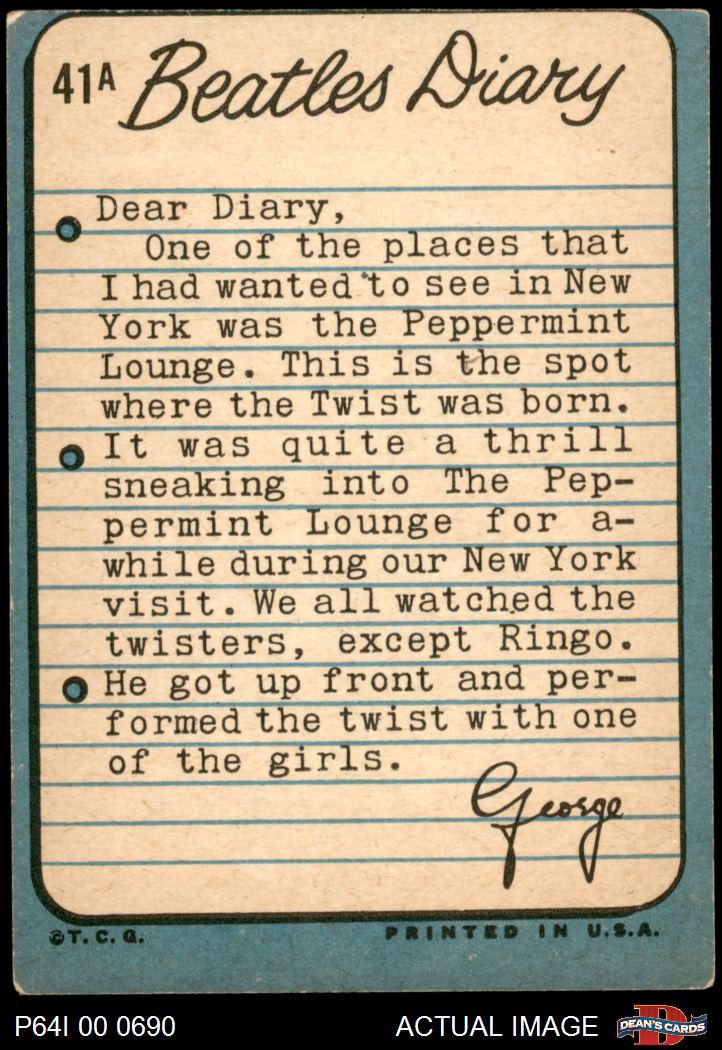 41A Beatles Diary
Dear Diary,
One of the places that
I had wanted to see in New
York was the Peppermint
Lounge. This is the spot
where the Twist was born.
It was quite a thrill
sneaking into The Pep-
permint Lounge for a-
while during our New York
visit. We all watched the
twisters, except Ringo.
He got up front and per-
formed the twist with one
of the girls.
George
©T.C.G. PRINTED IN U.S.A.
P64I 00 0690 ACTUAL IMAGE DEAN'S CARDS